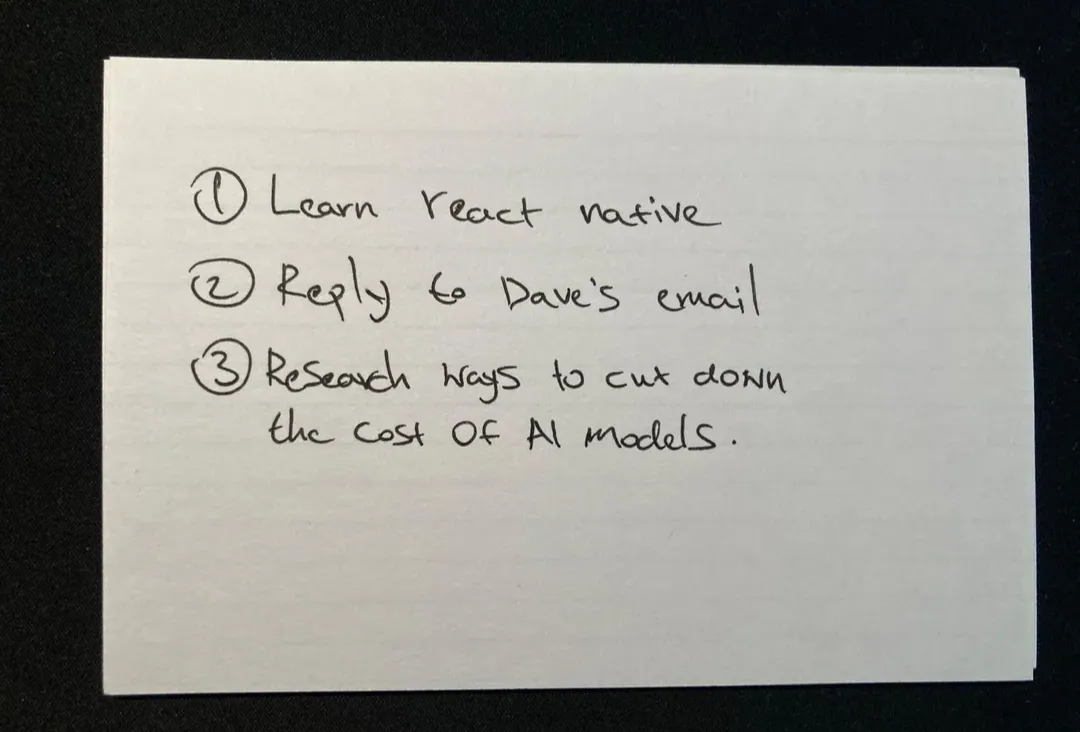 ① Learn react native
② Reply to Dave's email
③ Research ways to cut down
the cost of AI models.